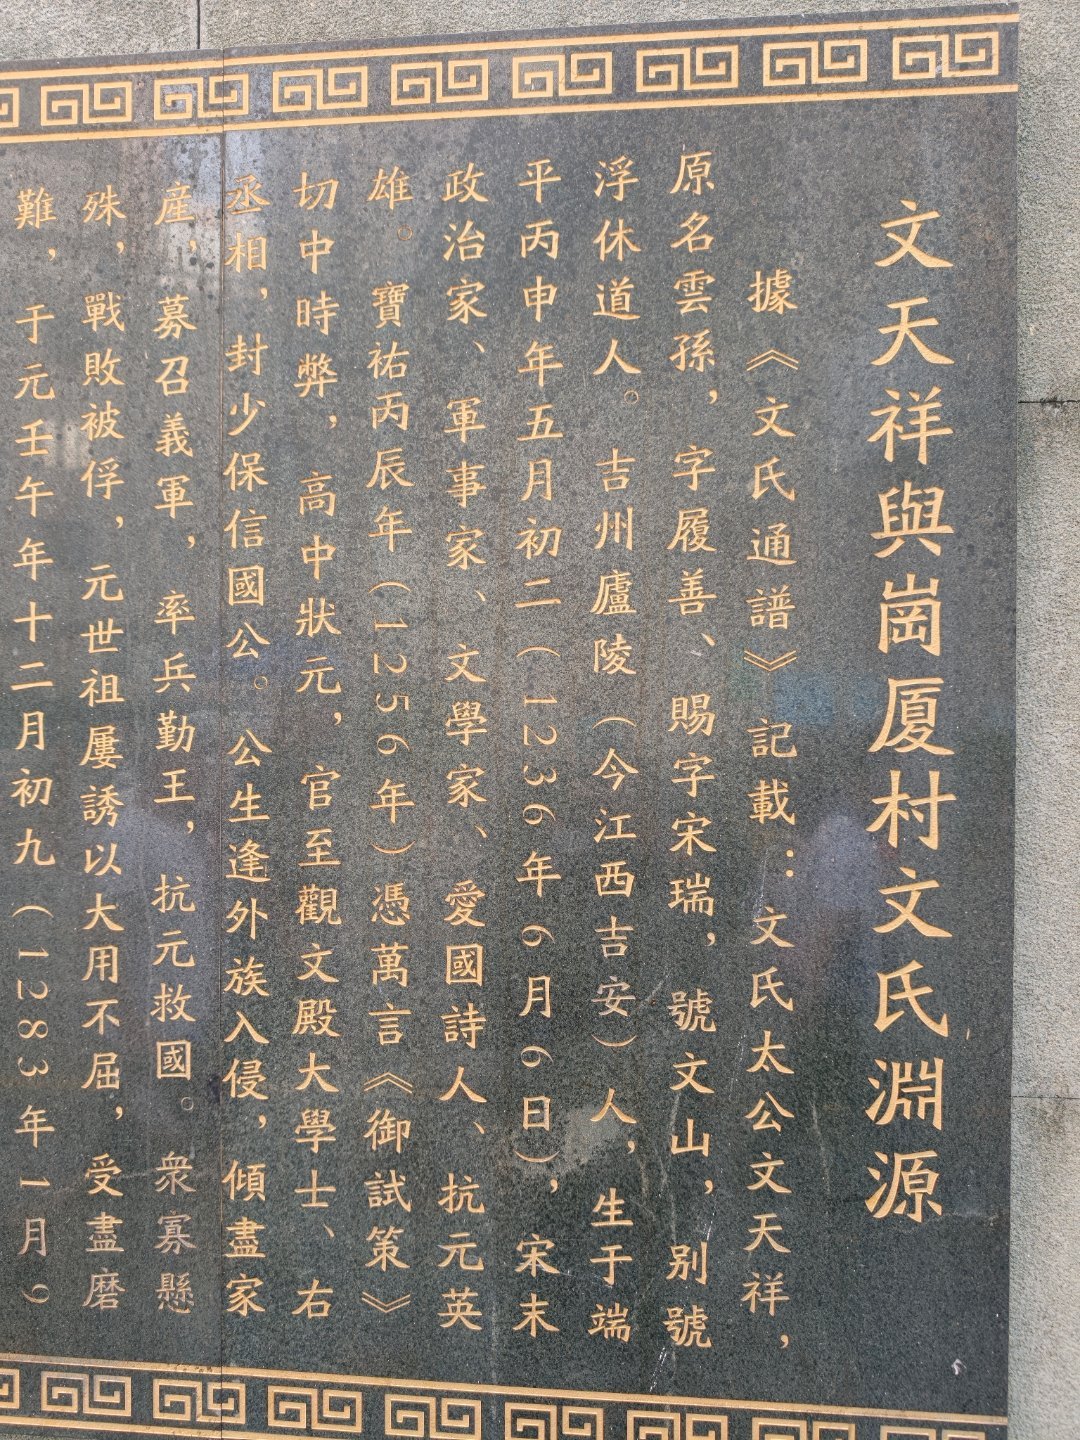 文天祥與崗厦村文氏淵源
據《文氏通譜》記載：文氏太公文天祥，
原名雲孫，字履善、賜字宋瑞，號文山，别號
浮休道人。吉州廬陵（今江西吉安）人，生于端
平丙申年五月初二（1236年6月6日），宋末
政治家、軍事家、文學家、愛國詩人、抗元英
雄。寶祐丙辰年（1256年）憑萬言《御試策》
切中時弊，高中狀元，官至觀文殿大學士、右
丞相，封少保信國公。公生逢外族入侵，傾盡家
産，募召義軍，率兵勤王，抗元救國。衆寡懸
殊，戰敗被俘，元世祖屢誘以大用不屈，受盡磨
難，于元壬午年十二月初九（1283年1月9